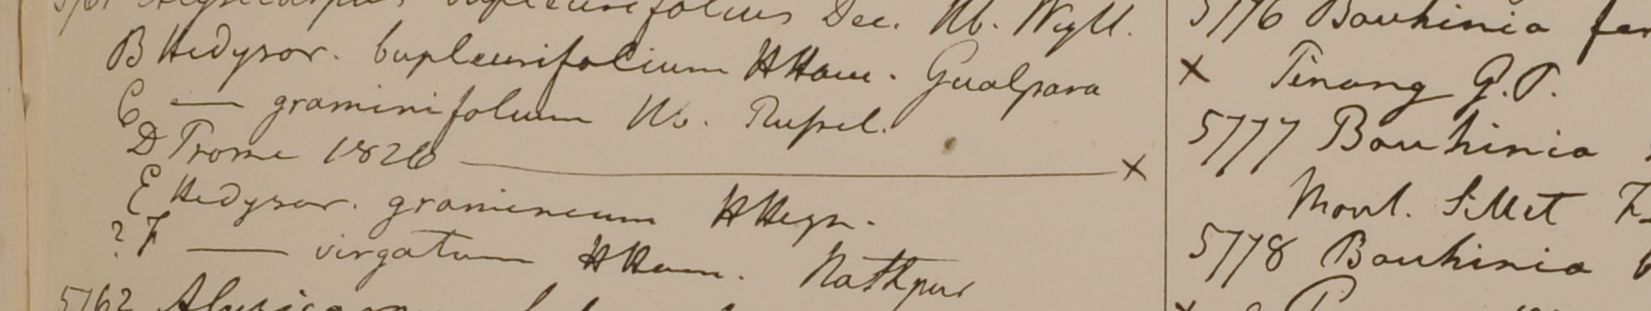 bupleurifolius Dec. Hb. Wight.
B Hedysar. bupleurifolium HHam. Gualpara
C — graminifolum Hb. Russel.
D Prome 1826 — x
E Hedysar. gramineum HHeyn.
? F — virgatum HHam. Nathpur
5762
5776 Bauhinia
x Pinang G.P.
5777 Bauhinia
Mont. Sillet
5778 Bauhinia